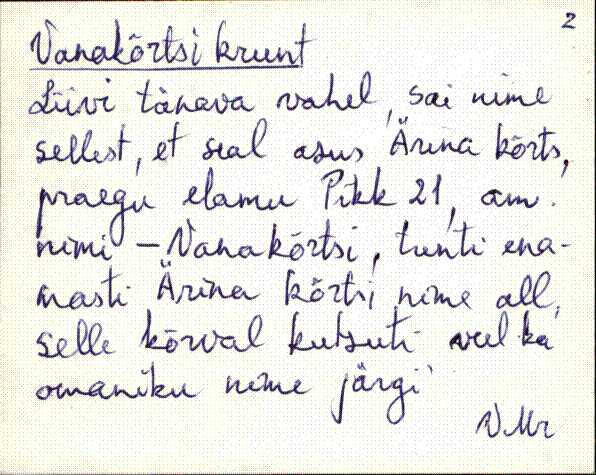 2
Vanakõrtsi krunt
Liivi tänava vahel, sai nime
sellest, et seal asus Ärina kõrts,
praegu elamu Pikk 21, am.
nimi - Vanakõrtsi, tunti ena-
masti Ärina kõrtsi nime all,
selle kõrval kutsuti veel ka
omaniku nime järgi
VMr